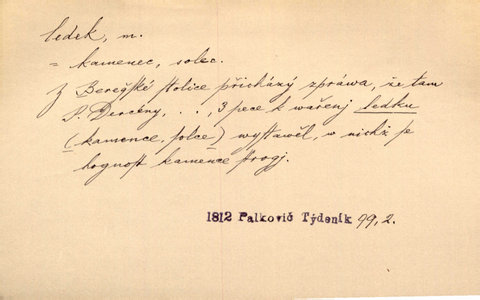 ledek, m.
= kamenec, solec.
Z Beregské stolice přicházý zpráwa, že tam
P. Dercény, . . , 3 pece k wařenj ledku
(kamence, solce) wystawěl, w nichž se
hognost kamence strogj.
1812 Palkovič Týdeník 99, 2.